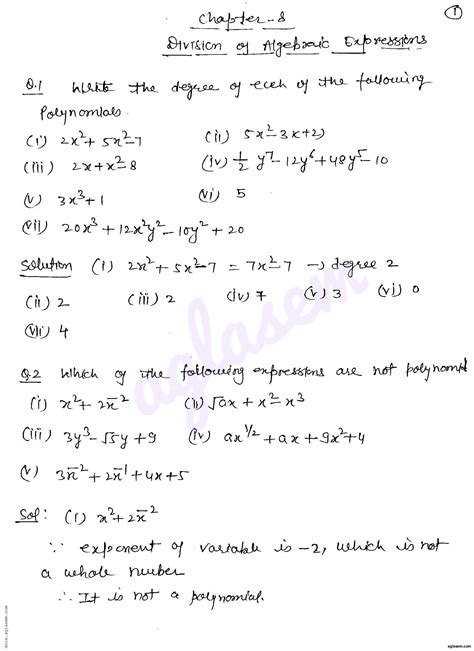 ①
Chapter-8
Division of Algebraic Expressions
Q.1 Write the degree of each of the following
Polynomials.
(i) 2x²+5x²-7 (ii) 5x²-3x+2)
(iii) 2x+x²-8 (iv) 1/2 y⁷-12y⁶+48y⁵-10
(v) 3x³+1 (vi) 5
(vii) 20x³+12x²y²-10y²+20
Solution (i) 2x²+5x²-7 = 7x²-7 → degree 2
(ii) 2 (iii) 2 (iv) 7 (v) 3 (vi) 0
(vii) 4
Q.2 Which of the following expressions are not polynomial
(i) x²+2x⁻² (ii) √ax+x²-x³
(iii) 3y³-√5y+9 (iv) ax^1/2+ax+9x²+4
(v) 3x⁻²+2x⁻¹+4x+5
Sol: (i) x²+2x⁻²
∵ exponent of variable is -2, which is not
a whole number
∴ It is not a polynomial.
aglasem
docs.aglasem.com
aglasem.com